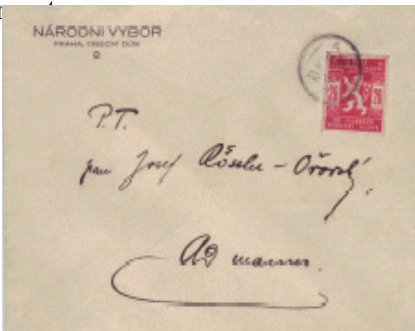 NÁRODNÍ VÝBOR
PRAHA, OBECNÍ DŮM
P.T.
pan Josef Rössler-Ořovský
Ad manus.